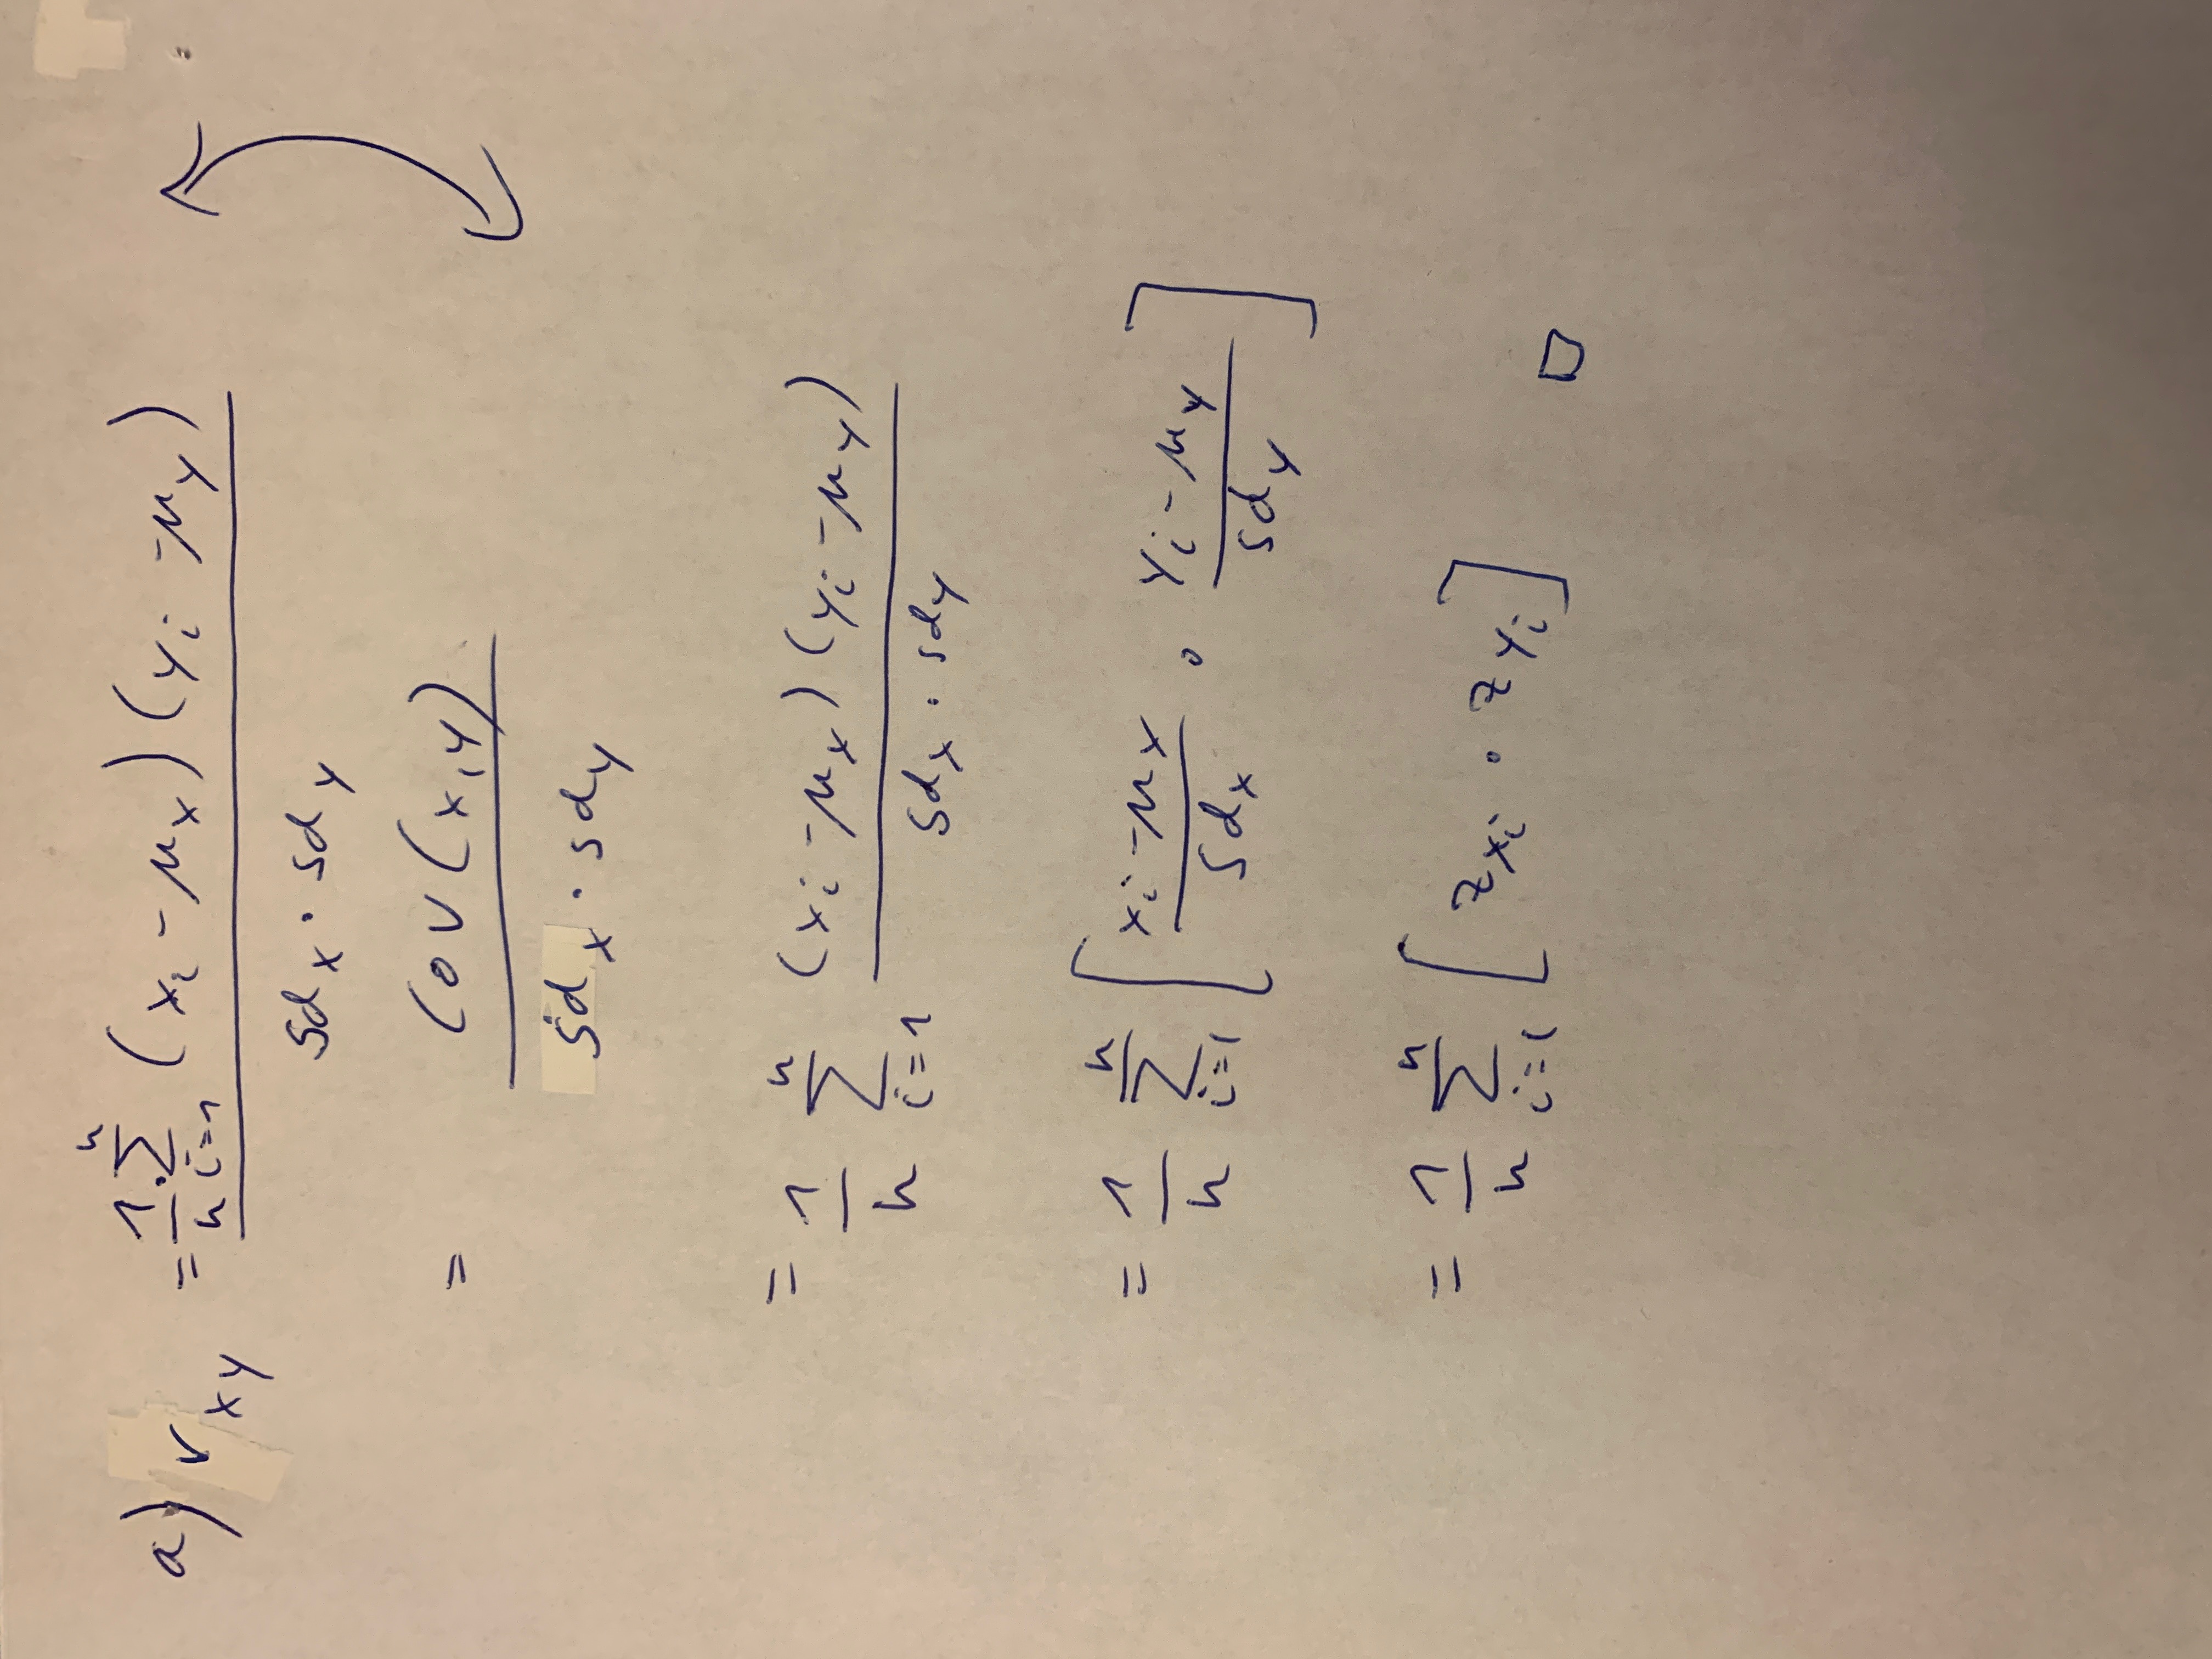 a) r_xy = 1/n · Σ_{i=1}^{n} (x_i - μ_x)(y_i - μ_y) / sd_x · sd_y
= Cov(x,y) / sd_x · sd_y
= 1/n Σ_{i=1}^{n} (x_i - μ_x)(y_i - μ_y) / sd_x · sd_y
= 1/n Σ_{i=1}^{n} [ x_i - μ_x / sd_x · y_i - μ_y / sd_y ]
= 1/n Σ_{i=1}^{n} [ z_{x_i} · z_{y_i} ] □